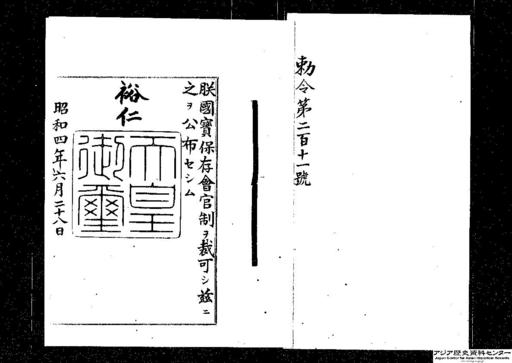 勅令第二百十一號
朕國寶保存會官制ヲ裁可シ茲ニ
之ヲ公布セシム
裕仁
天皇御璽
昭和四年六月二十八日
アジア歴史資料センター
Japan Center for Asian Historical Records